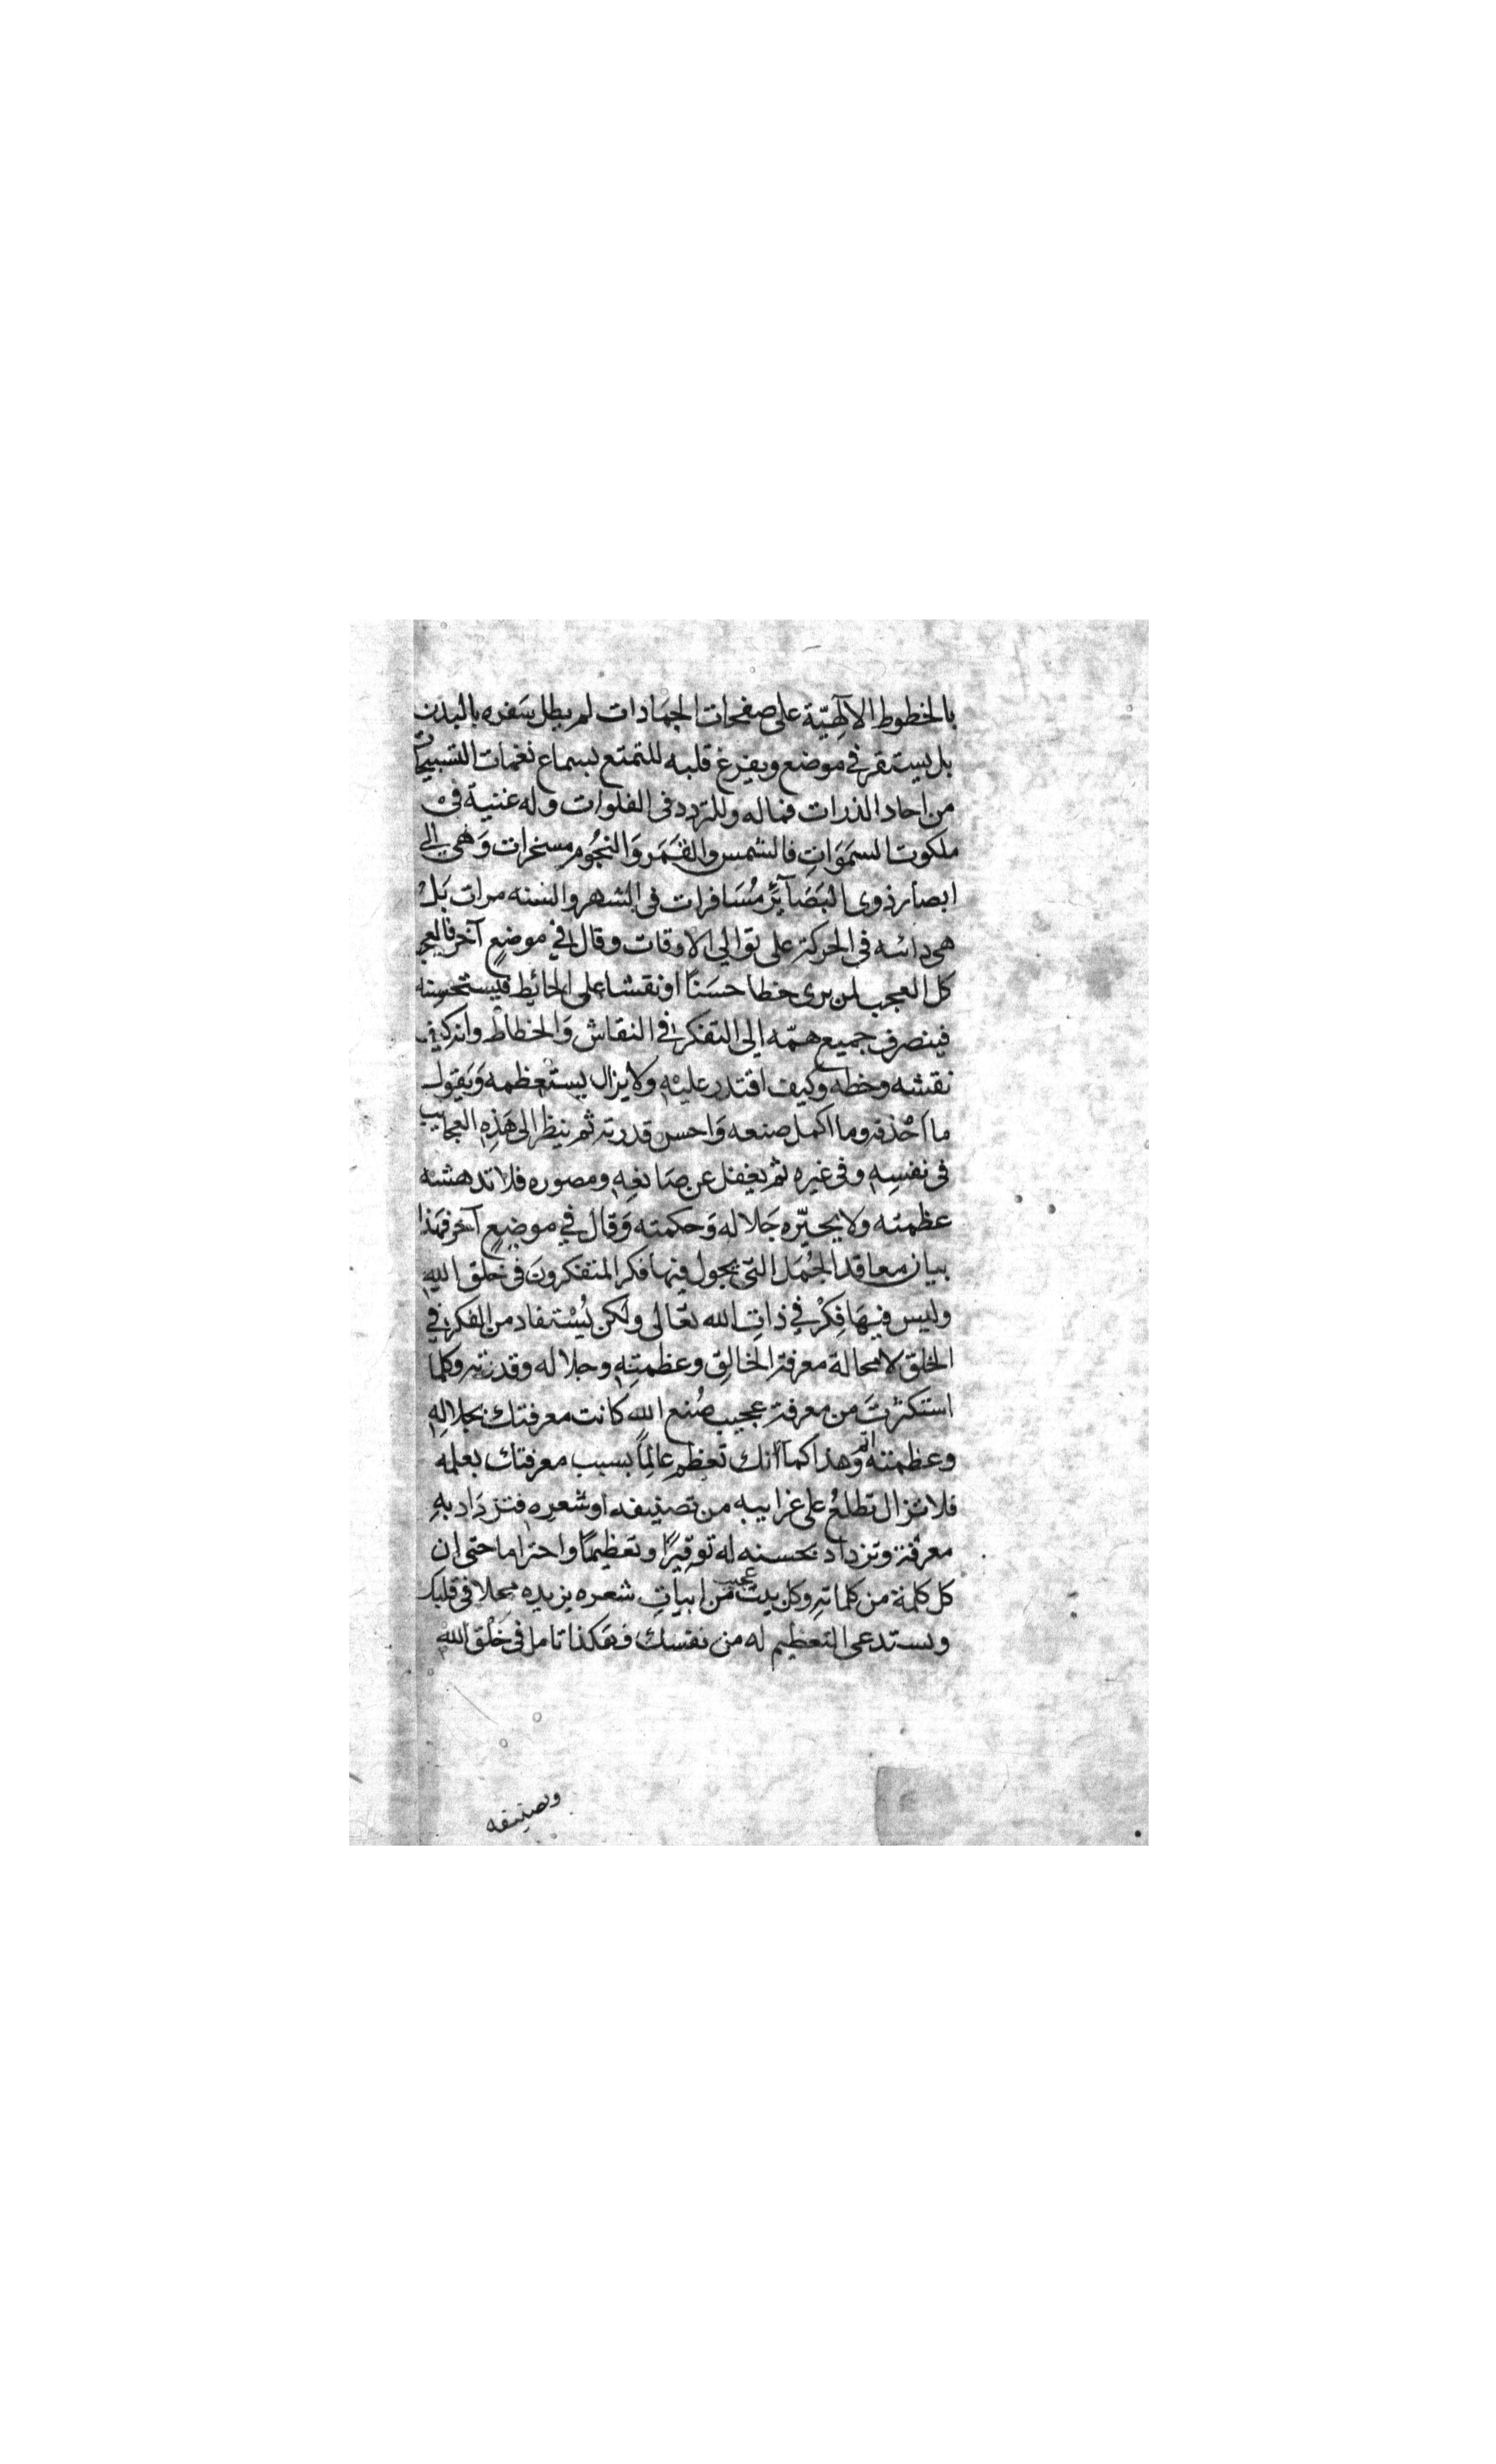 بالخطوط الالٓهيّة على صفحات الجمَادات لم يطل سَفره بالبدن
بل يستقر في موضع ويفرغ قلبه للتمتع بسماع نغمات التسبيحات
من احاد الذرات فماله وللتردد فى الفلوات وله غنية فى
ملكوت السمَوَاتِ فالشمس والقَمَر وَالنجُوم مسخرات وَهى الى
ابصار ذوى البَصَآئِر مُسَافرات فى الشهر والسنه مرات بَلْ
هى دائبه فى الحركة على توالى الاوقات وقال فى موضعٍ آخر فالعجب
كل العجب لمن يرى خطا حسَنًا او نقشا على الحائط فيستحسنه
فينصرف جميع همّه الى التفكر فى النقاش وَالخطاط وانه كيف
نقشه وخطه وكيف اقتدر عليْهِ ولا يزال يستعظمه وَيَقول
ما اَحْذقه وما اكمل صنعه وَاحسن قدرته ثم ينظر الى هَذِهِ العجايب
فى نفسِهِ وفى غيره ثم يغفل عن صَانعِهِ ومصوره فلا تدهشه
عظمته ولا يحيّره جَلاله وَحكمته وَقال في موضِعٍ آخر فهَذا
بيان معاقد الجُمَل التّى يجول فيها فكر المتفكرونَ فى خلق اللهِ
وليس فيهَا فِكْر في ذاتِ الله تعَالى ولكن يُسْتفاد من الفكر في
الخلق لا محالة معرفة الخالِق وعظمتِهِ وجلاله وقدرته وكلما
استكثرتَ من معرفة عجيب صُنع اللهِ كانت معرفتك بجلالِهِ
وعظمته اتم وَهذا كماَ انك تعظم عالِماً بسبب معرفتك بعلمه
فلا تزال تطلعُ على غرايبه من تصنيفه او شعرِهِ فتزدَاد بهِ
معرفة وتزداد بحسنه له توقِيرًا وتعَظيمًا واحتراما حتى ان
كل كلمة من كلماته وكل بيت عجيب من ابياتِ شعره يزيده محلا فى قلبك
ويستدعى التعَظيم له من نفسك فهَكذا تامل فى خَلْق الله
وتصنيفه